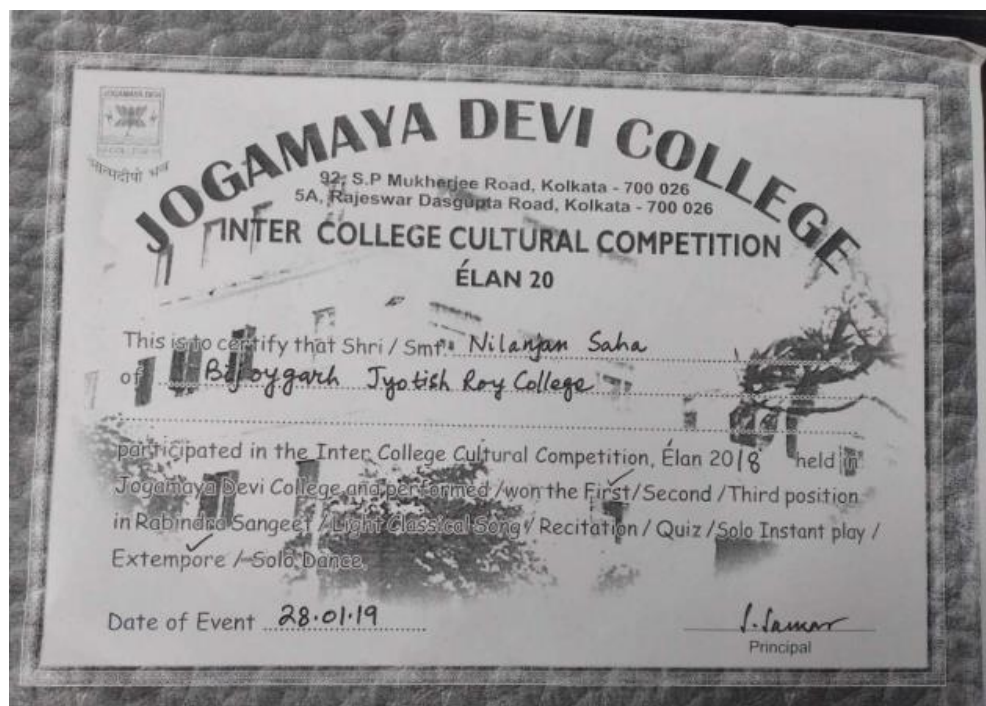 JOGAMAYA DEVI
आत्मदीपो भव
JOGAMAYA DEVI COLLEGE
92, S.P Mukherjee Road, Kolkata - 700 026
5A, Rajeswar Dasgupta Road, Kolkata - 700 026
INTER COLLEGE CULTURAL COMPETITION
ÉLAN 20
This is to certify that Shri / Smt. Nilanjan Saha
of Bijoygarh Jyotish Roy College
participated in the Inter College Cultural Competition, Élan 2018 held in
Jogamaya Devi College and performed /won the First/Second /Third position
in Rabindra Sangeet / Light Classical Song / Recitation / Quiz /Solo Instant play /
Extempore / Solo Dance.
Date of Event 28.01.19
Principal